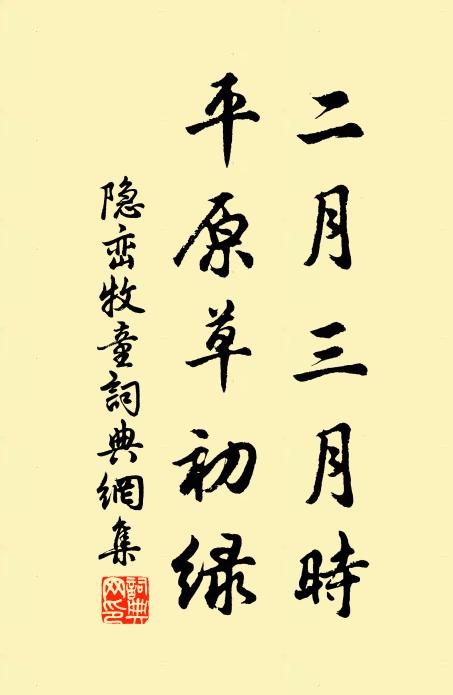 二月三月時
平原草初綠
隐峦牧童詞典網集
詞典网印